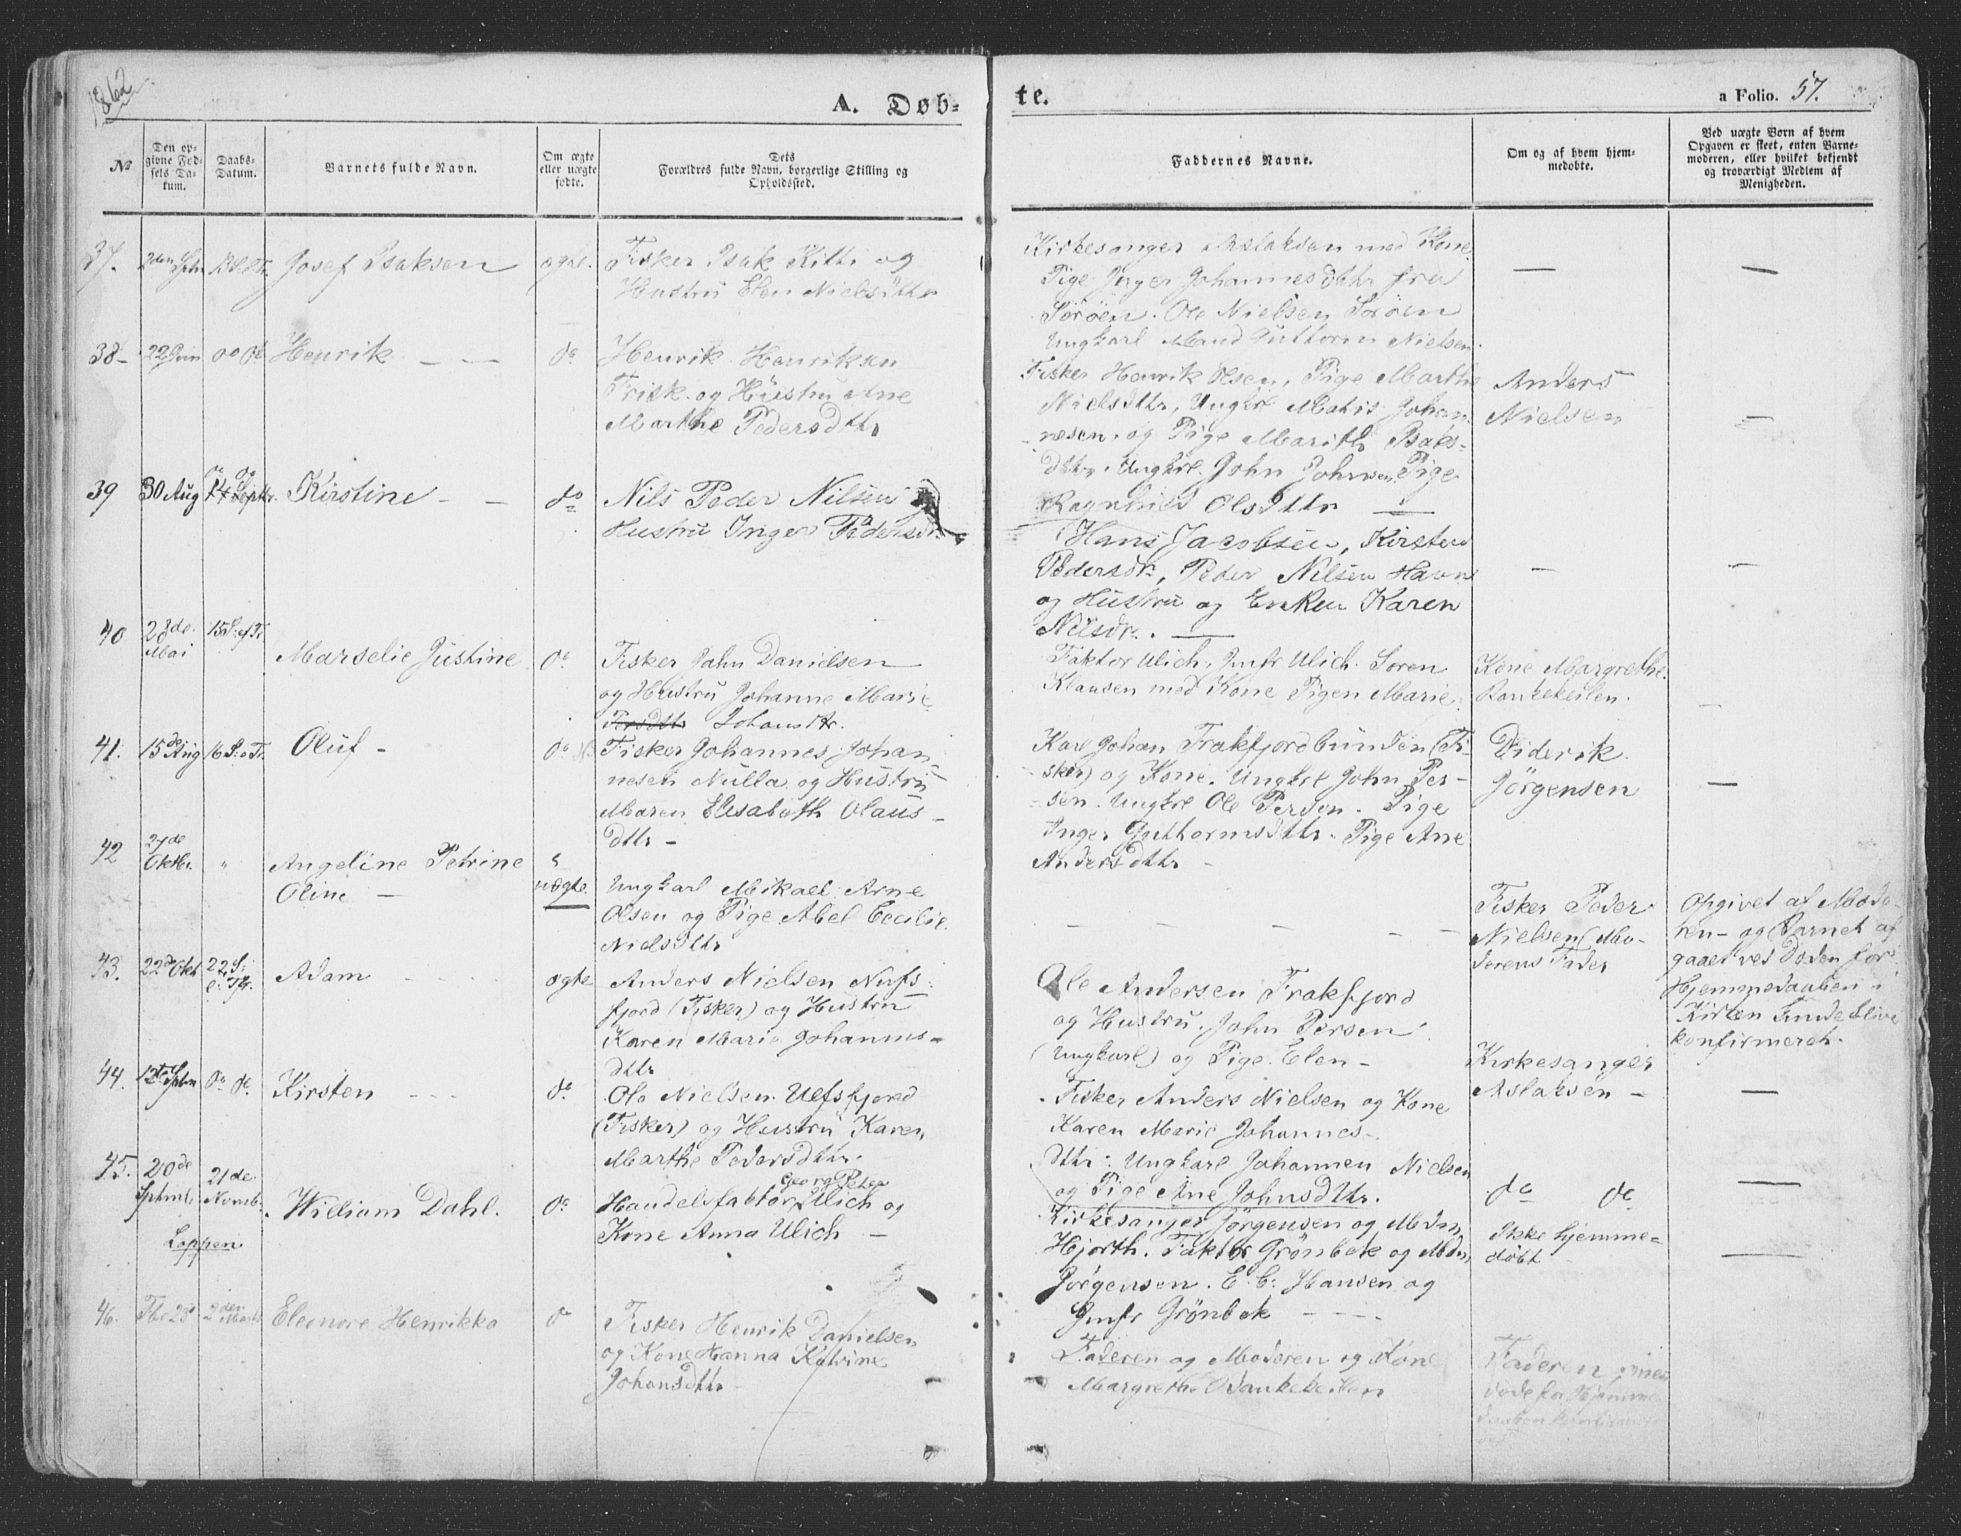 1862
A. Døb-
te.
a Folio. 57.
No
Den op-
givne Fød-
sels Da-
tum.
Daabs-
Datum.
Barnets fulde Navn.
Om ægte
eller uægte
fødte.
Dets
Forældres fulde Navn, borgerlige Stilling og
Opholdssted.
Faddernes Navne.
Om og af hvem hjem-
medøbte.
Ved uægte Børn af hvem
Opgaven er skeet, enten Barne-
moderen, eller hvilket bekjendt
og troværdigt Medlem af
Menigheden.
37.
Josef Isaksen
ægte.
Fisker Isak Kitti og
Hustru Elen Nielsdttr
Kirkesanger Aslaksen med Kone
Pige Inger Johannesdttr fra
Söröen. Ole Nielsen Söröen
Ungkarl Mand Guttorm Nielsen.
—
—
38-
22 Juni
do do
Henrik — —
do
Henrik Henriksen
Frisk og Hüstru Ane
Marthe Pedersdttr
Fisker Henrik Olsen, Pige Marthe
Nielsdttr, Ungkrl Mathis Johan-
nesen, og Pige Marith Isaks-
dttr, Ungkrl. John Johnsen, Pige
Ragnhild Olsdttr —
Anders
Nielsen
—
39
30 Aug
14 Septbr.
Kirstine — —
do
Nils Peder Nilsen
Hustru Inger Pedersdr.
Hans Jacobsen, Kirsten
Pedersdr., Peder Nilsen Havn
og Hustru og Enken Karen
Nilsdr. —
—
—
40
23de
Mai
15 S. ef Tr
Marselie Justine
do
Fisker Jahn Danielsen
og Hustru Johanne Marie
Johansdtr.
Faktor Ulich, Jmfr Ulich. Sören
Klausen med Kone Pigen Marie.
Kone Margrethe
Dankekeilen.
—
41.
15de Aug
16 S. e Tr.
Oluf -
do
Fisker Johannes Johan-
nesen Nulla og Hustru
Maren Elisabeth Olaus-
dttr -
Karl Johan Frakfjordbunden (Fi-
sker) og Kone. Ungkrl John Per-
sen. Ungkrl Ole Person. Pige
Inger Guthormsdttr. Pige Ane
Andersdttr -
Diderik
Jörgensen
—
42
Oktbr.
"
Angeline Petrine
Oline —
uægte
Ungkarl Mikael Arne
Olsen og Pige Abel Cecilie
Nielsdttr
— — — — —
Fisker Peder
Nielsen (Mo-
derens Fader
Opgivet af Mode-
ren - og Barnet af
gaaet ved Döden för
Hjemmedaaben i
Kirken kunde blive
konfirmeret.
43.
22de Okt
22 S.
e. Tr.
Adam — — —
ægte
Anders Nielsen Nufs-
fjord (Fisker) og Hustru
Karen Marie Johannes-
dttr
Ole Andersen Frakfjord
og Hustru. John Persen
(Ungkarl) og Pige Elen -
Kirkesanger
Aslaksen -
—
44.
do do.
Kirsten - - -
do
Ole Nielsen Ulfsfjord
(Fisker) og Hustru Karen
Marthe Pedersdttr.
Fisker Anders Nielsen og Kone
Karen Marie Johannes-
dttr. Ungkarl Johannen Nielsen
og Pige Ane Johnsdttr.
do do
—
45.
20de
Sptmb.
Loppen
21de
Novmb.
William Dahl.
do
Georg Peter
Handelsfaktor Ulich og
Kone Anna Ulich —
Kirkesanger Jörgensen og Mdm,
Hjorth. Faktor Grönbek og Mdm,
Jörgensen. E. C. Hansen og
Jmfr Grönbek - - -
Ikke hjemme-
döbt
—
46.
2den
Eleonore Henrikka
do
Fisker Henrik Danielsen
og Kone Hanna Katrine
Johansdttr
Faderen og Moderen og Kone
Margrethe Dankekeilen
Faderen